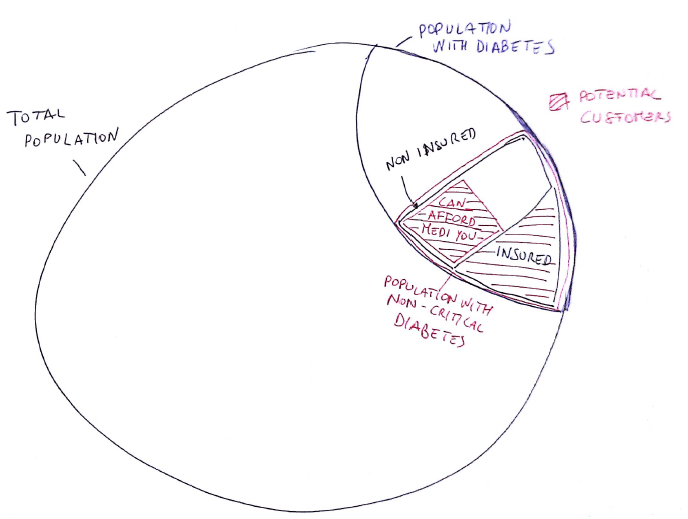 POPULATION
WITH DIABETES
POTENTIAL
CUSTOMERS
TOTAL
POPULATION
NON INSURED
CAN
AFFORD
MEDI YOU
INSURED
POPULATION WITH
NON-CRITICAL
DIABETES